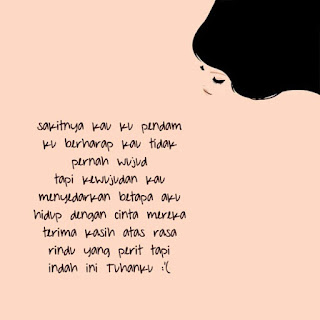 sakitnya kau ku pendam
ku berharap kau tidak
pernah wujud
tapi kewujudan kau
menyedarkan betapa aku
hidup dengan cinta mereka
terima kasih atas rasa
rindu yang perit tapi
indah ini Tuhanku :'(